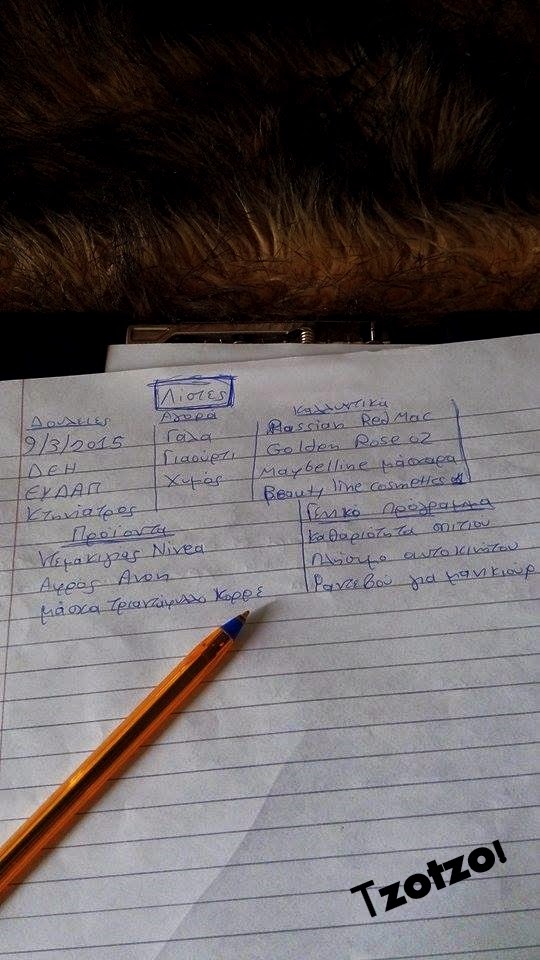 Λίστες
Δουλειές
9/3/2015
ΔΕΗ
ΕΥΔΑΠ
Κτηνίατρος
Αγορά
Γάλα
Γιαούρτι
Χυμός
Καλλυντικά
Russian Red Mac
Golden Rose 02
Maybelline μάσκαρα
Beauty line cosmetics
Προϊόντα
Ντεμακιγιάζ Nivea
Αφρός
μάσκα τριαντάφυλλο Κορρέ
Γενικό πρόγραμμα
Καθαριότητα σπιτιού
Πλύσιμο αυτοκινήτου
Ραντεβού για μανικιούρ
Tzotzoi